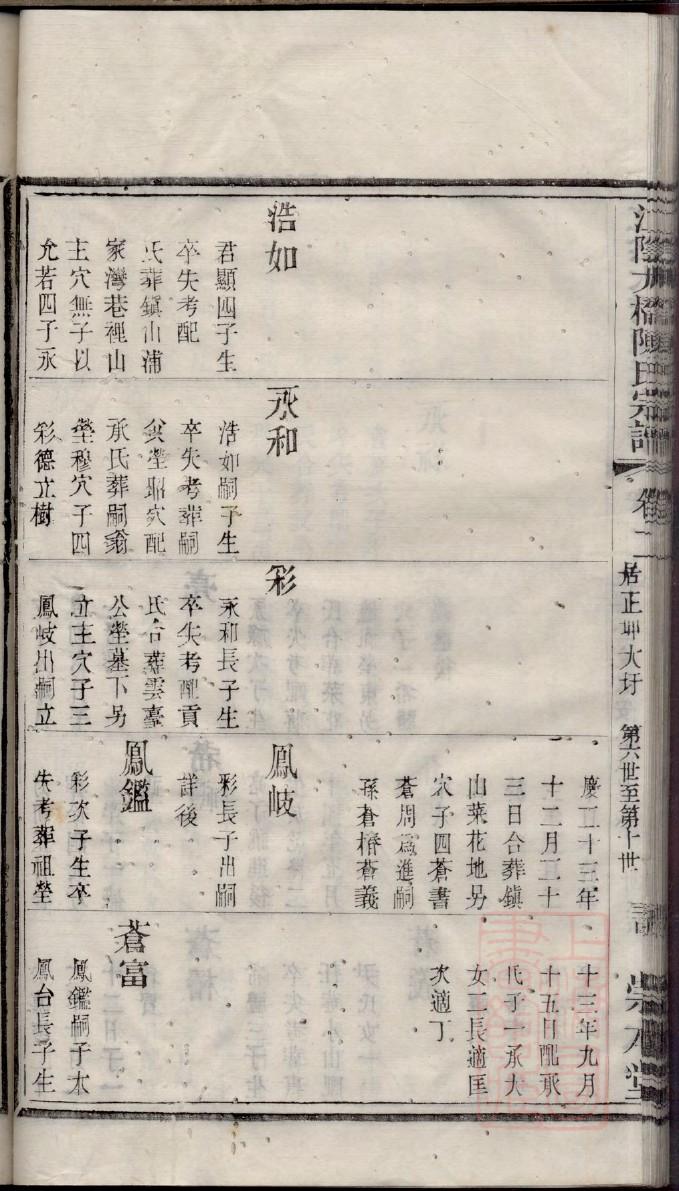 陳氏宗譜
卷二
居正坤大圩
第六世至第十世
譜
浩如
君顯四子生
卒失考配
氏葬鎮山浦
家灣巷裡山
主穴無子以
允若四子永
永和
浩如嗣子生
卒失考葬嗣
父塋昭穴配
承氏葬嗣翁
塋穆穴子四
彩德立樹
彩
永和長子生
卒失考配貢
氏合葬雲臺
公塋墓下另
立主穴子三
鳳岐出嗣立
慶二十三年
十二月二十
三日合葬鎮
山菜花地另
穴子四蒼書
蒼周為進嗣
孫蒼椿蒼義
鳳岐
彩長子出嗣
詳後
鳳鑑
彩次子生卒
失考葬祖塋
十三年九月
十五日配承
氏子一承大
女二長適匡
次適丁
蒼富
鳳鑑嗣子本
鳳台長子生